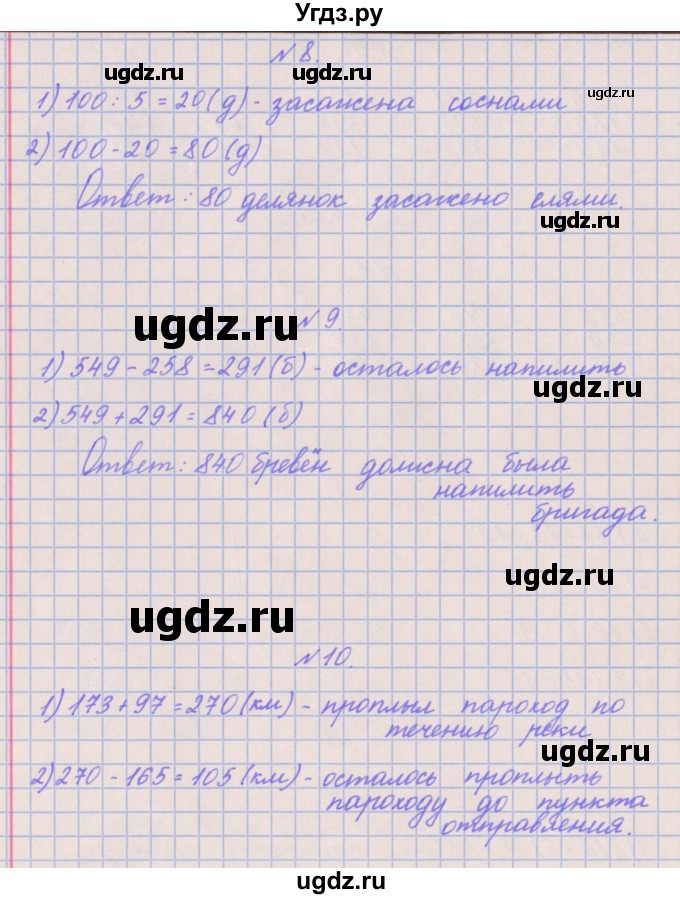 Угдз.ру
№ 8.
ugdz.ru ugdz.ru
1) 100 : 5 = 20 (д) - засажена соснами
ugdz.ru
2) 100 - 20 = 80 (д)
Ответ: 80 делянок засажено елями.
ugdz.ru
ugdz.ru
№ 9.
1) 549 - 258 = 291 (б) - осталось напилить
ugdz.ru
2) 549 + 291 = 840 (б)
Ответ: 840 бревён должна была
напилить
бригада.
ugdz.ru
ugdz.ru
№ 10.
1) 173 + 97 = 270 (км) - проплыл пароход по
течению реки
ugdz.ru
2) 270 - 165 = 105 (км) - осталось проплыть
пароходу до пункта
отправления.
ugdz.ru